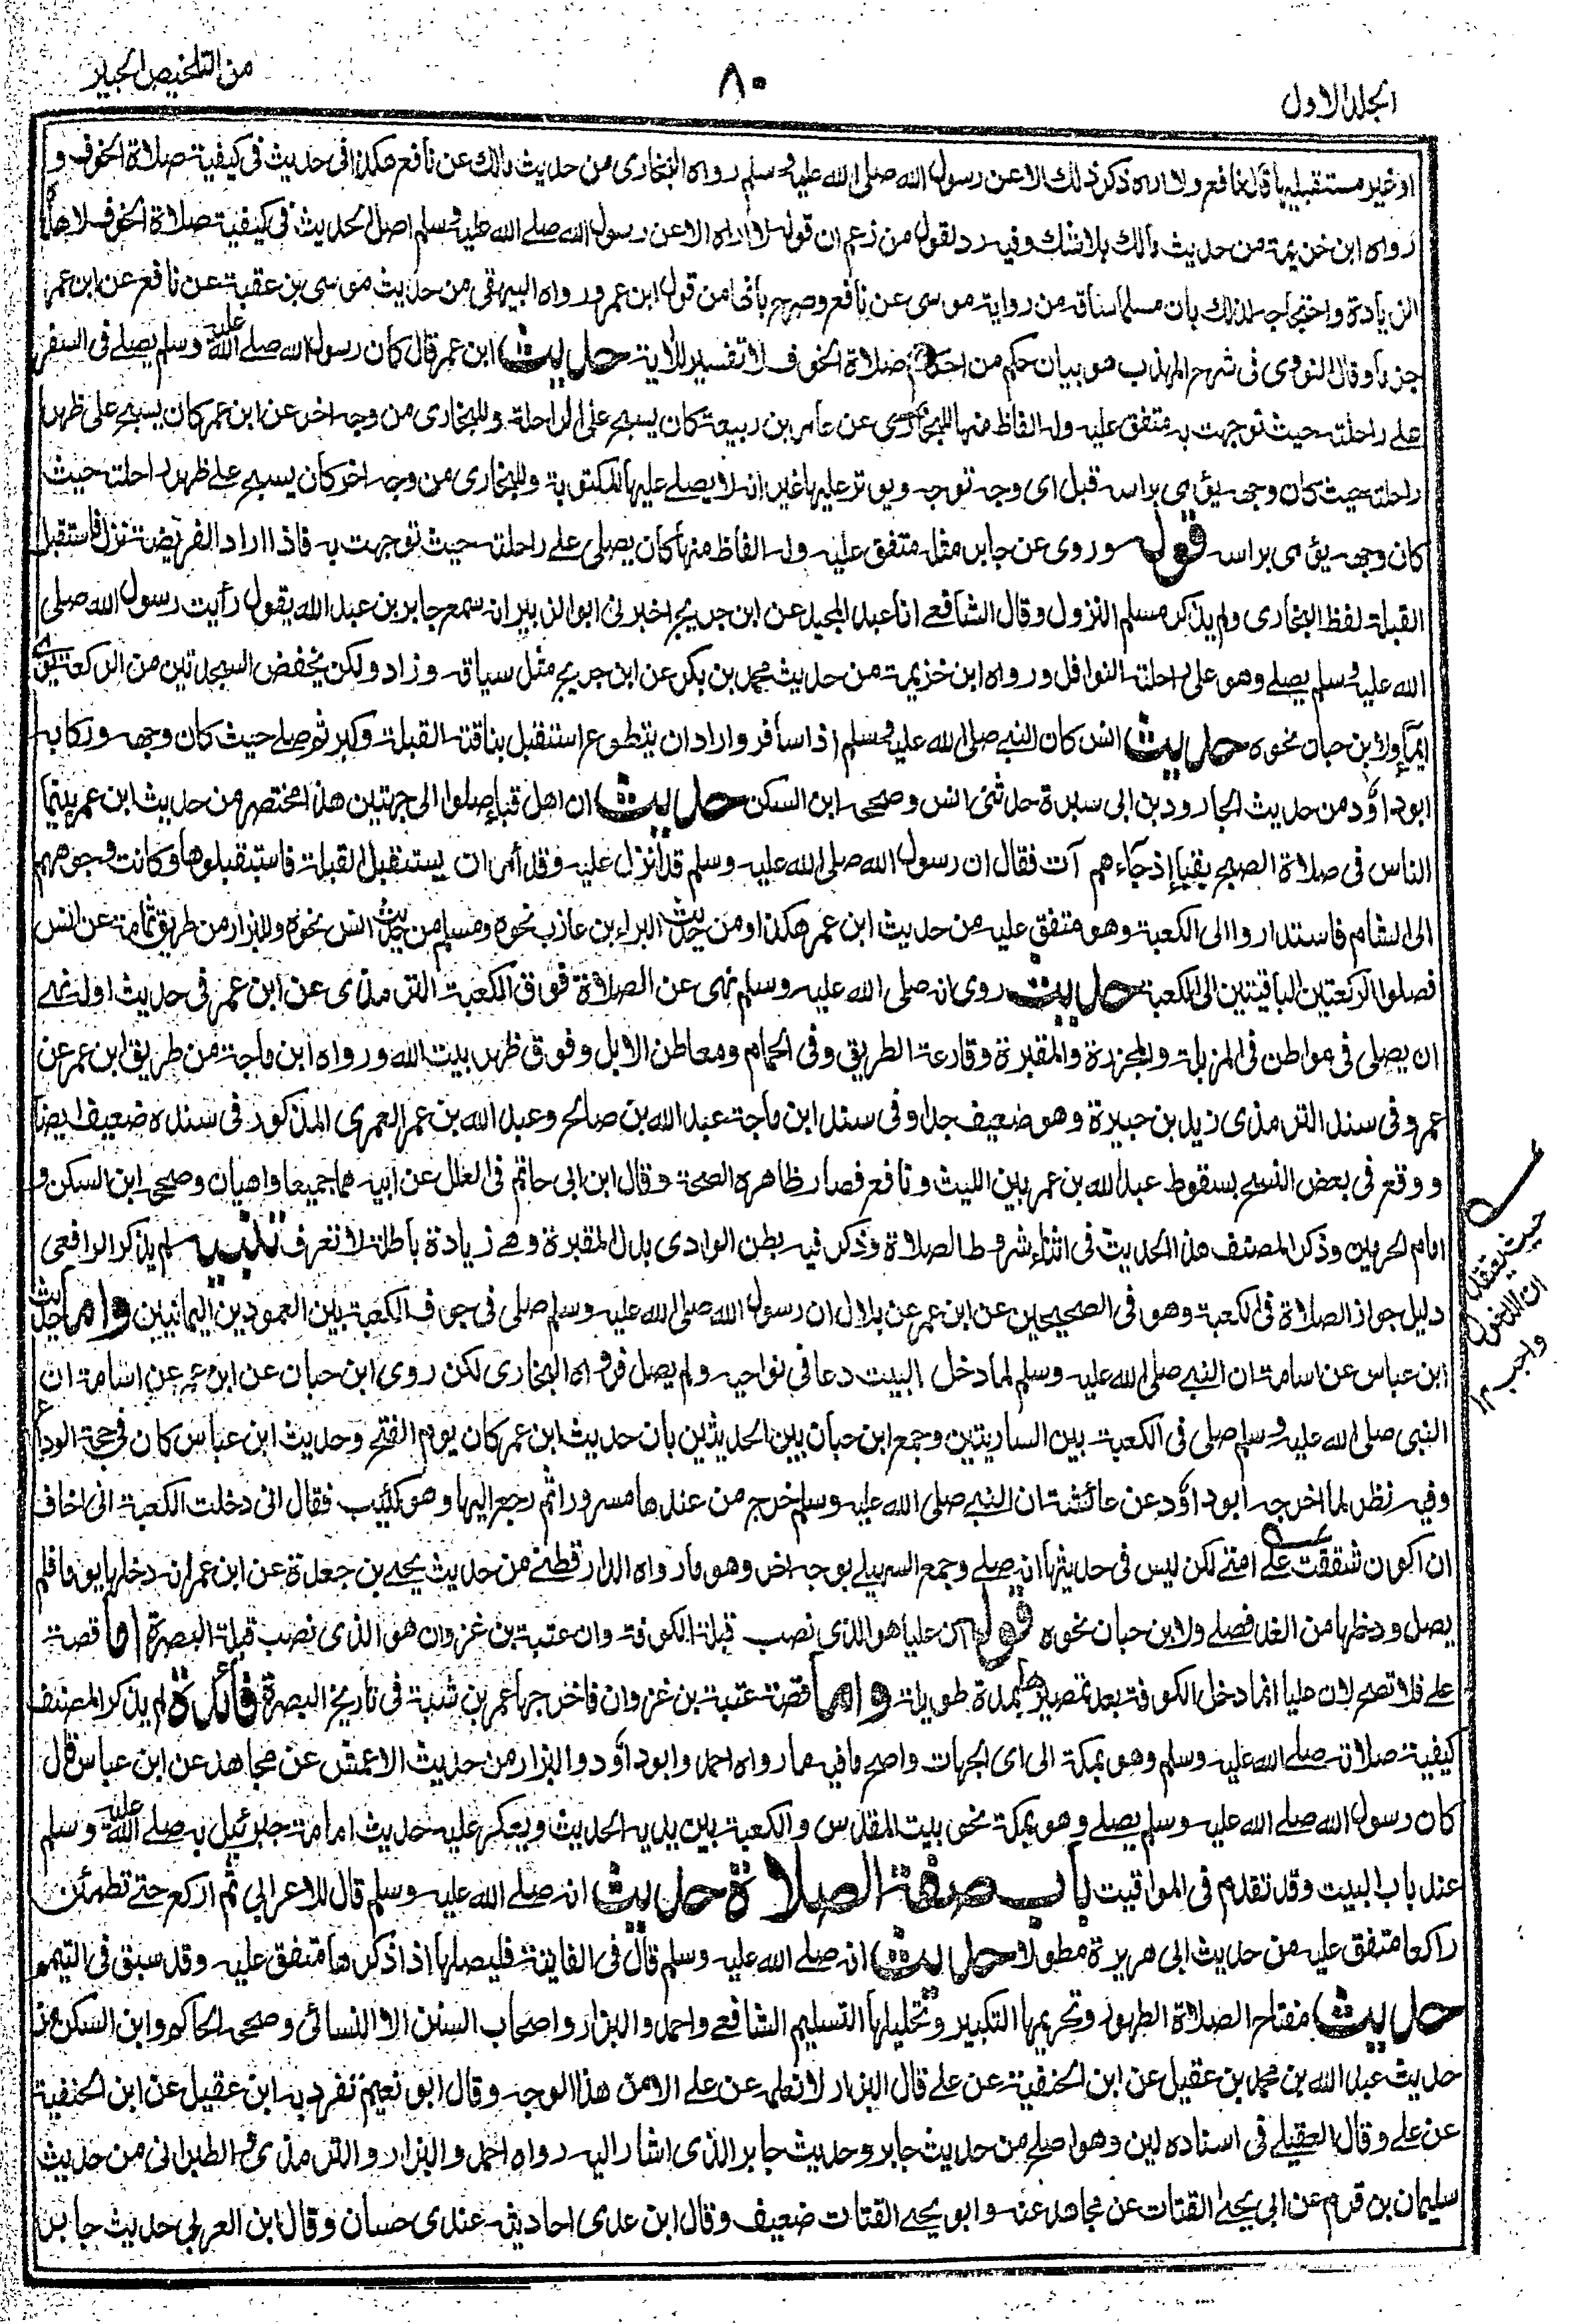 الجلد الاول
٨٠
من التلخيص الحبير
او غير مستقبليها قال نافع ولا اراه ذكر ذلك الا عن رسول الله صلى الله عليه وسلم رواه البخارى من حديث مالك عن نافع هكذا فى حديث فى كيفية صلاة الخوف و
رواه ابن خزيمة من حديث مالك بلا شك وفيه رد لقول من زعم ان قوله لا اراه الا عن رسول الله صلے الله عليه وسلم اصل الحديث فى كيفية صلاة الخوف لا هذه
الزيادة واحتجاجه لذلك بان مسلما ساقه من رواية موسى عن نافع وصرح بانها من قول ابن عمر ورواه البيهقى من حديث موسى بن عقبة عن نافع عن ابن عمر
جزما وقال النووى فى شرح المهذب هو بيان حكم من احكام صلاة الخوف لا تفسير للاية حديث ابن عمر قال كان رسول الله صلے الله عليه وسلم يصلے فى السفر
على راحلته حيث توجهت به متفق عليه وله الفاظ منها للبخارى عن عامر بن ربيعة كان يسبح على الراحلة وللبخارى من وجه اخر عن ابن عمر كان يسبح على ظهر
راحلته حيث كان وجهه يؤمى براسه قبل اى وجه توجه ويوتر عليها غير انه لا يصلے عليها المكتوبة وللبخارى من وجه اخر كان يسبح علے ظهر راحلته حيث
كان وجهه يؤمى براسه قوله وروى عن جابر مثله متفق عليه وله الفاظ منها كان يصلى علے راحلته حيث توجهت به فاذا اراد الفريضة نزل فاستقبل
القبلة لفظ البخارى ولم يذكر مسلم النزول وقال الشافعے انا عبد المجيد عن ابن جريج اخبرنى ابو الزبير انه سمع جابر بن عبد الله يقول رأيت رسول الله صلى
الله عليه وسلم يصلے وهو على راحلته النوافل ورواه ابن خزيمة من حديث محمد بن بكر عن ابن جريج مثل سياقه وزاد ولكن يخفض السجدتين من الركعة يؤمى
ايماء ولابن حبان نحوه حديث انس كان النبے صلى الله عليه وسلم اذا سافر واراد ان يتطوع استقبل بناقته القبلة وكبر ثم صلے حيث كان وجهه وركابه
ابو داؤد من حديث الجارود بن ابى سبرة حدثنى انس وصححه ابن السكن حديث ان اهل قباء صلوا الى جهتين هذا مختصر من حديث ابن عمر بينما
الناس فى صلاة الصبح بقباء اذ جاءهم آت فقال ان رسول الله صلى الله عليه وسلم قد انزل عليه وقد أمر ان يستقبل القبلة فاستقبلوها وكانت وجوههم
الى الشام فاستداروا الى الكعبة وهو متفق عليه من حديث ابن عمر هكذا ومن حديث البراء بن عازب نحوه ومسلم من حديث انس نحوه وللبزار من طريق ثمامة عن انس
فصلوا الركعتين الباقيتين الى الكعبة حديث روى انه صلى الله عليه وسلم نهى عن الصلاة فوق الكعبة الترمذى عن ابن عمر فى حديث اوله نهے
ان يصلى فى مواطن فى المزبلة والمجزرة والمقبرة وقارعة الطريق وفى الحمام ومعاطن الابل وفوق ظهر بيت الله ورواه ابن ماجة من طريق ابن عمر عن
عمر وفى سند الترمذى زيد بن جبيرة وهو ضعيف جدا وفى سند ابن ماجة عبد الله بن صالح وعبد الله بن عمر العمرى المذكور فى سنده ضعيف ايضا
ووقع فى بعض النسخ بسقوط عبد الله بن عمر بين الليث ونافع فصار ظاهره الصحة وقال ابن ابى حاتم فى العلل عن ابيه هما جميعا واهيان وصححه ابن السكن و
امام الحرمين وذكر المصنف هذا الحديث فى اثناء شروط الصلاة وذكر فيه بطن الوادى بدل المقبرة وهے زيادة باطلة لا تعرف تنبيه لم يذكر الرافعى
دليل جواز الصلاة فى الكعبة وهو فى الصحيحين عن ابن عمر عن بلال ان رسول الله صلى الله عليه وسلم صلى فى جوف الكعبة بين العمودين اليمانيين واما حديث
ابن عباس عن اسامة ان النبے صلى الله عليه وسلم لما دخل البيت دعا فى نواحيه ولم يصل فرواه البخارى لكن روى ابن حبان عن ابن عمر عن اسامة ان
النبى صلى الله عليه وسلم صلى فى الكعبة بين الساريتين وجمع ابن حبان بين الحديثين بان حديث ابن عمر كان يوم الفتح وحديث ابن عباس كان فى حجة الوداع
وفيه نظر لما اخرجه ابو داؤد عن عائشة ان النبے صلى الله عليه وسلم خرج من عندها مسرورا ثم رجع اليها وهو كئيب فقال انى دخلت الكعبة انى اخاف
ان اكون شققت علے امتے لكن ليس فى حديثها انه صلے وجمع السهيلے بوجه اخر وهو ما رواه الدارقطنے من حديث يحيے بن جعدة عن ابن عمر انه دخلها يوما فلم
يصل ودخلها من الغد فصلے ولابن حبان نحوه قوله ان عليا هو الذى نصب قبلة الكوفة وان عتبة بن غزوان هو الذى نصب قبلة البصرة اما قصة
علے فلا تصح لان عليا انما دخل الكوفة بعد تمصيرها بمدة طويلة واما قصة عتبة بن غزوان فاخرجها عمر بن شبة فى تاريخ البصرة فائدة لم يذكر المصنف
كيفية صلاته صلے الله عليه وسلم وهو بمكة الى اى الجهات واصح ما فيه ما رواه احمد وابو داؤد والبزار من حديث الاعمش عن مجاهد عن ابن عباس قال
كان رسول الله صلے الله عليه وسلم يصلے وهو بمكة نحو بيت المقدس والكعبة بين يديه الحديث ويعكر عليه حديث امامة جبرئيل به صلے الله عليه وسلم
عند باب البيت وقد تقدم فى المواقيت باب صفة الصلاة حديث انه صلے الله عليه وسلم قال للاعرابى ثم اركع حتے تطمئن
راكعا متفق عليه من حديث ابى هريرة مطولا حديث انه صلے الله عليه وسلم قال فى الفايتة فليصلها اذا ذكرها متفق عليه وقد سبق فى التيمم
حديث مفتاح الصلاة الطهور وتحريمها التكبير وتحليلها التسليم الشافعے واحمد والبزار واصحاب السنن الا النسائى وصححه الحاكم وابن السكن من
حديث عبد الله بن محمد بن عقيل عن ابن الحنفية عن علے قال البزار لا نعلمه عن علے الا من هذا الوجه وقال ابو نعيم تفرد به ابن عقيل عن ابن الحنفية
عن علے وقال العقيلے فى اسناده لين وهو اصلح من حديث جابر وحديث جابر الذى اشار اليه رواه احمد والبزار والترمذى والطبرانى من حديث
سليمان بن قرم عن ابى يحيے القتات عن مجاهد عنه وابو يحيے القتات ضعيف وقال ابن عدى احاديثه عندى حسان وقال ابن العربى حديث جابر
ان الدخول
واجب ١٢